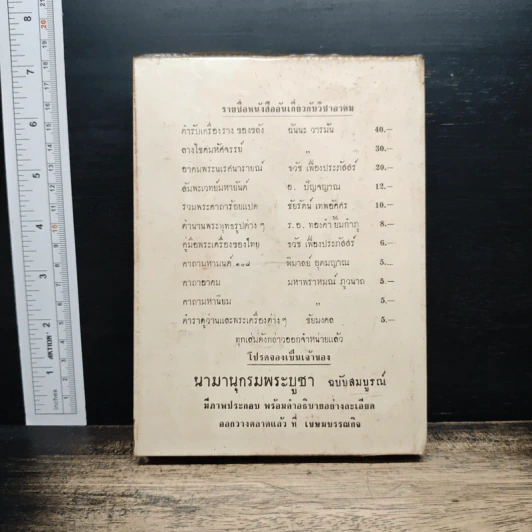 รายชื่อหนังสืออันเกี่ยวกับวิชาอาคม
ตำรับเครื่องราง ของขลัง ฉันนะ วารมัน 40.—
ลางโชคมหัศจรรย์ " 30.—
อาคมพระนเรศนารายณ์ ธวัช เฟื่องประภัสสร์ 20.—
สัมพะเวทย์มหายันต์ อ. ปัญจญาณ 12.—
รวมพระคาถาร้อยแปด ชัยรัตน์ เทพอัศศร 10.—
ตำนานพระพุทธรูปต่างๆ ร.อ. ทองคำ ยิ้มกำภู 8.—
คู่มือพระเครื่องของไทย ธวัช เฟื่องประภัสสร์ 6.—
คาถามหามนต์ ๑๐๘ พิมาลย์ อุดมญาณ 5.—
คาถาอาคม มหาพราหมณ์ ภูวนาถ 5.—
คาถามหานิยม " 5.—
ตำราดูว่านและพระเครื่องต่างๆ ชัยมงคล 5.—
ทุกเล่มดังกล่าวออกจำหน่ายแล้ว
โปรดจองเป็นเจ้าของ
นามานุกรมพระบูชา ฉบับสมบูรณ์
มีภาพประกอบ พร้อมคำอธิบายอย่างละเอียด
ออกวางตลาดแล้ว ที่ เขษมบรรณกิจ
8
7
6
5
4
3
2
1
20
10